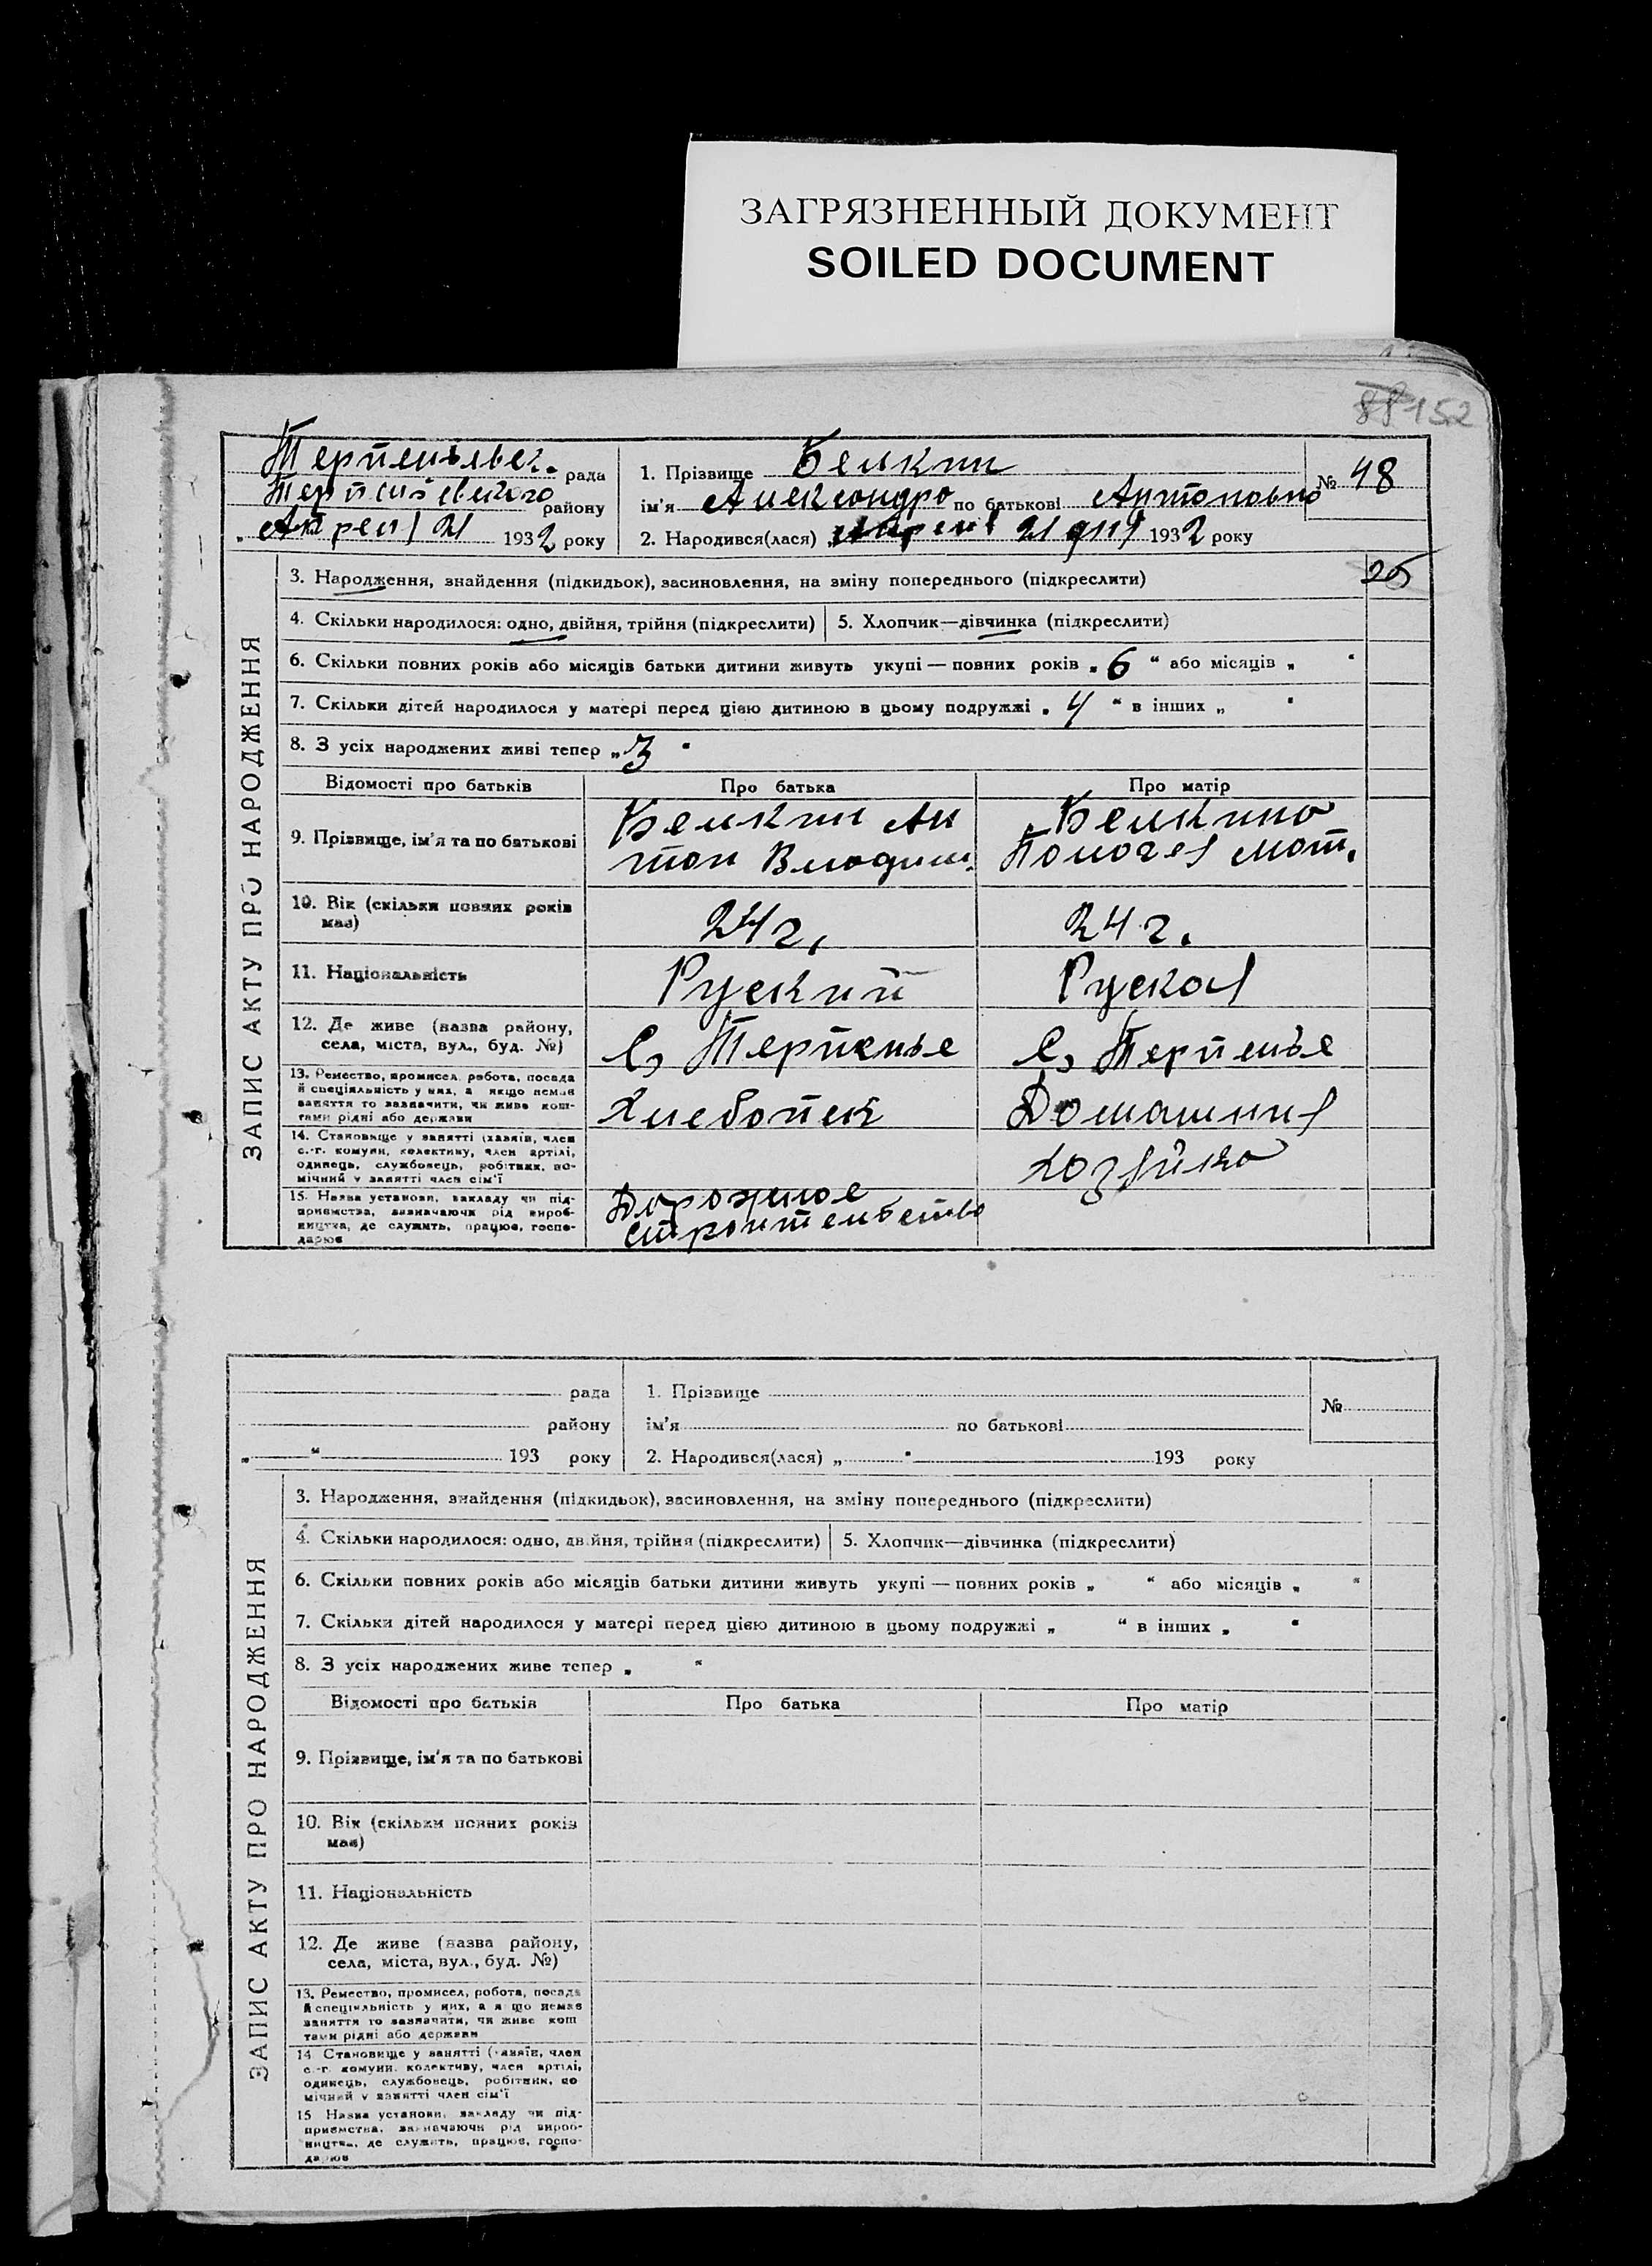 ЗАГРЯЗНЕННЫЙ ДОКУМЕНТ
SOILED DOCUMENT
152
рада
району
Апрел 21 1932 року
1. Прізвище Белкин
ім'я Александра по батькові Антоновна
№ 48
2. Народився(лася) 21 дня 1932 року
ЗАПИС АКТУ ПРО НАРОДЖЕННЯ
3. Народження, знайдення (підкидьок), засиновлення, на зміну попереднього (підкреслити)
4. Скільки народилося: одно, двійня, трійня (підкреслити)
5. Хлопчик—дівчинка (підкреслити)
6. Скільки повних років або місяців батьки дитини живуть укупі — повних років „ 6 “ або місяців „ “
7. Скільки дітей народилося у матері перед цією дитиною в цьому подружжі „ 4 “ в інших „ “
8. З усіх народжених живі тепер „ 3 “
Відомості про батьків
Про батька
Про матір
9. Прізвище, ім'я та по батькові
Белкин Ан
тон Владим.
Белкина
Мат.
10. Вік (скільки повних років
має)
24 г.
24 г.
11. Національність
Руский
Руская
12. Де живе (назва району,
села, міста, вул., буд. №)
С, Терпенье
С, Терпенье
13. Ремество, промисел, робота, посада
й спеціяльність у них, а якщо немає
заняття то зазначити, чи живе кош-
тами рідні або держави
Хлебопек
Домашния
хозяйка
14. Становище у занятті (хазяїн, член
с.-г. комуни, колективу, член артілі,
одинець, службовець, робітник, по-
мічний у занятті член сім'ї
15. Назва установи, закладу чи під-
приємства, зазначаючи рід вироб-
ництва, де служить, працює, госпо-
дарює
Дорожное
строительство
рада
району
„ “ 193 року
1. Прізвище
ім'я по батькові
№
2. Народився(лася) „ “ 193 року
ЗАПИС АКТУ ПРО НАРОДЖЕННЯ
3. Народження, знайдення (підкидьок), засиновлення, на зміну попереднього (підкреслити)
4. Скільки народилося: одно, двійня, трійня (підкреслити)
5. Хлопчик—дівчинка (підкреслити)
6. Скільки повних років або місяців батьки дитини живуть укупі — повних років „ “ або місяців „ “
7. Скільки дітей народилося у матері перед цією дитиною в цьому подружжі „ “ в інших „ “
8. З усіх народжених живе тепер „ “
Відомості про батьків
Про батька
Про матір
9. Прізвище, ім'я та по батькові
10. Вік (скільки повних років
має)
11. Національність
12. Де живе (назва району,
села, міста, вул., буд. №)
13. Ремество, промисел, робота, посада
й спеціяльність у них, а якщо немає
заняття то зазначити, чи живе кош
тами рідні або держави
14 Становище у занятті (хазяїн, член
с.-г. комуни, колективу, член артілі,
одинець, службовець, робітник, по
мічний у занятті член сім'ї
15 Назва установи, закладу чи під-
приємства, зазначаючи рід вироб-
ництва, де служить, працює, госпо-
дарює